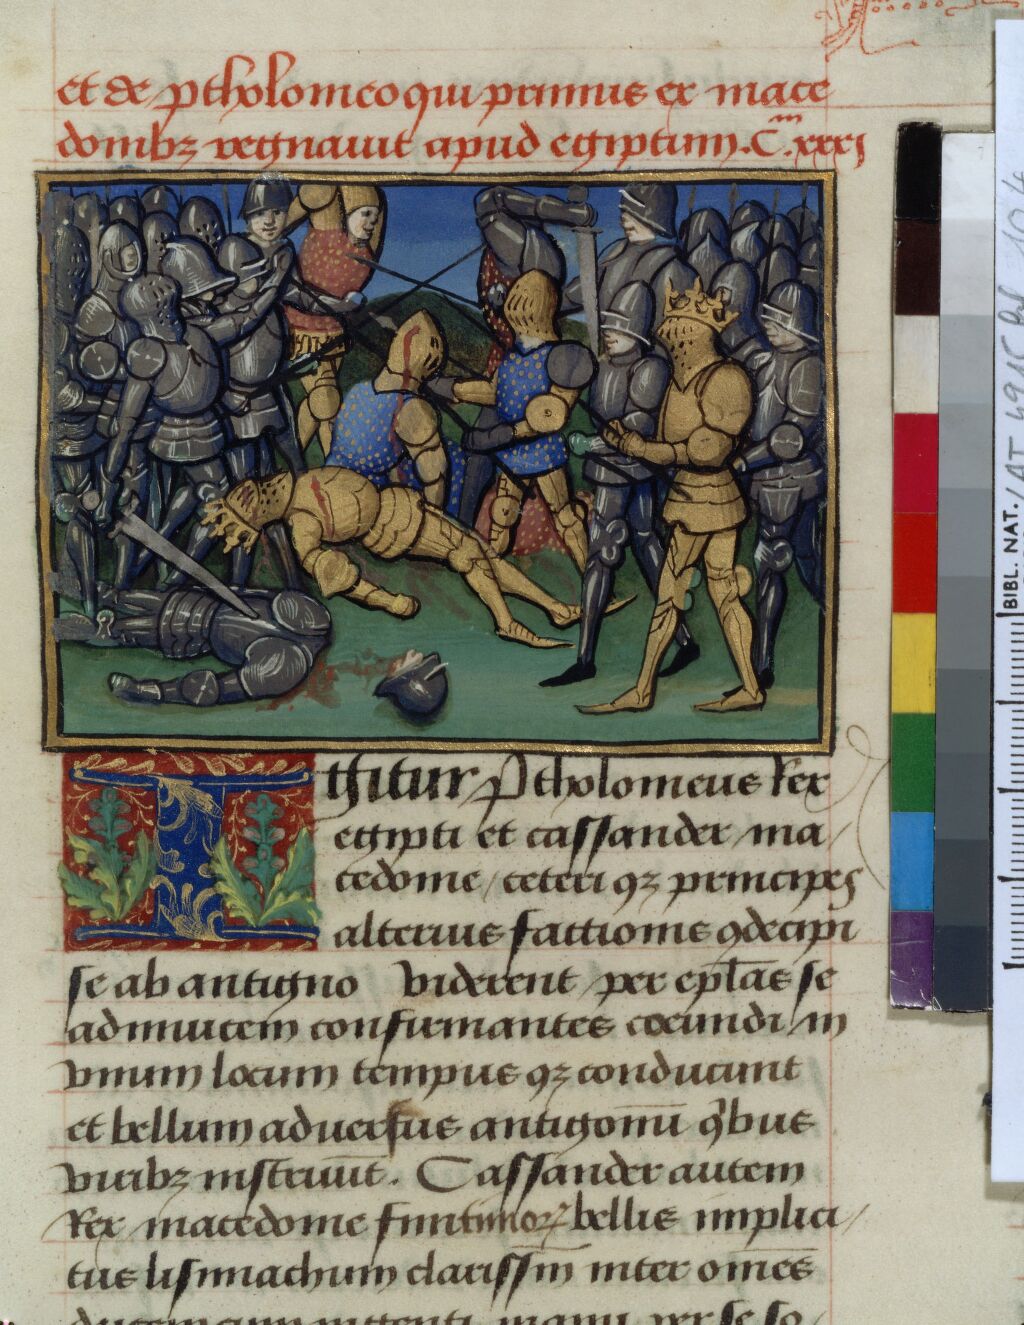 et de ptholomeo qui primus ex mace
donibꝫ regnavit apud egiptum. Cm. xxxj
Igitur Ptholomeus Rex
egipti et cassander ma/
cedonie / ceteri qꝫ principes
alterius factionis decipi
se ab antigno viderent per eplãs se
ad inuicem confirmantes coeundi in
vnum locum tempus qꝫ conducunt
et bellum aduersus antigonũ qͥbus
viribꝫ instruũt. Cassander autem
Rex macedonie finitimoꝝ bellis implici/
tus lisimachum clarissim̃ inter om̃es
ducem cum ingenti manu per se so
BIBL. NAT. / LAT 6915 fol 104